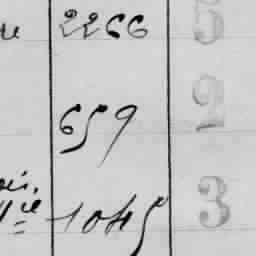 2266 5
659 2
1045 3